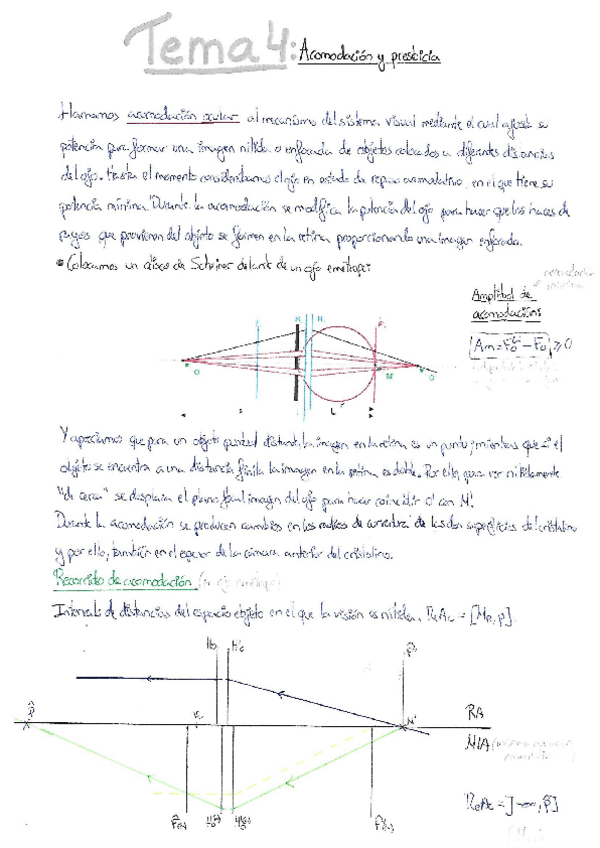 Tema 4: Acomodación y presbicia
Llamamos acomodación ocular al mecanismo del sistema visual mediante el cual ajusta su
potencia para formar una imagen nítida o enfocada de objetos colocados a diferentes distancias
del ojo. Hasta el momento considerábamos el ojo en estado de reposo acomodativo, en el que tiene su
potencia mínima. Durante la acomodación se modifica la potencia del ojo para hacer que los haces de
rayos que provienen del objeto se formen en la retina proporcionando una imagen enfocada.
• Colocamos un disco de Scheiner delante de un ojo emétrope:
Amplitud de
acomodación:
Am = F
≥ 0
O
M'
O'
L'
Y apreciamos que para un objeto puntual distante, la imagen en la retina es un punto, mientras que si el
objeto se encuentra a una distancia finita la imagen en la retina es doble. Por ello, para ver nítidamente
"de cerca" se desplaza el plano focal imagen del ojo para hacer coincidir O' con M'.
Durante la acomodación se producen cambios en los radios de curvatura de las dos superficies del cristalino
y por ello, también en el espesor de la cámara anterior del cristalino.
Recorrido de acomodación
Intervalo de distancias del espacio objeto en el que la visión es nítida.
M'
RA
MA